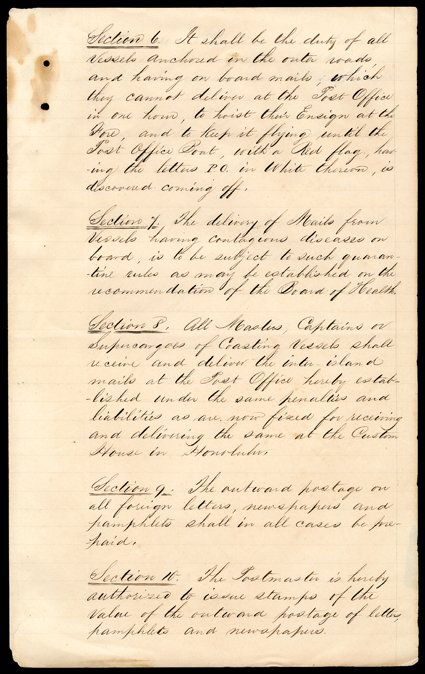 Section 6. It shall be the duty of all
Vessels anchored in the outer roads,
and having on board mails, which
they cannot deliver at the Post Office
in one hour, to hoist their Ensign at the
Fore, and to keep it flying until the
Post Office Boat, with a Red flag, hav-
ing the letters P.O. in White thereon, is
discovered coming off.
Section 7. The delivery of Mails from
Vessels having contagious diseases on
board, is to be subject to such quaran-
tine rules as may be established on the
recommendation of the Board of Health.
Section 8. All Masters, Captains or
Supercargoes of Coasting Vessels shall
receive and deliver the inter-island
mails at the Post Office hereby estab-
-lished under the same penalties and
liabilities as are now fixed for receiving
and delivering the same at the Custom
House in Honolulu.
Section 9. The outward postage on
all foreign letters, newspapers and
pamphlets shall in all cases be pre-
paid.
Section 10. The Postmaster is hereby
authorized to issue stamps of the
value of the outward postage of letters,
pamphlets and newspapers.